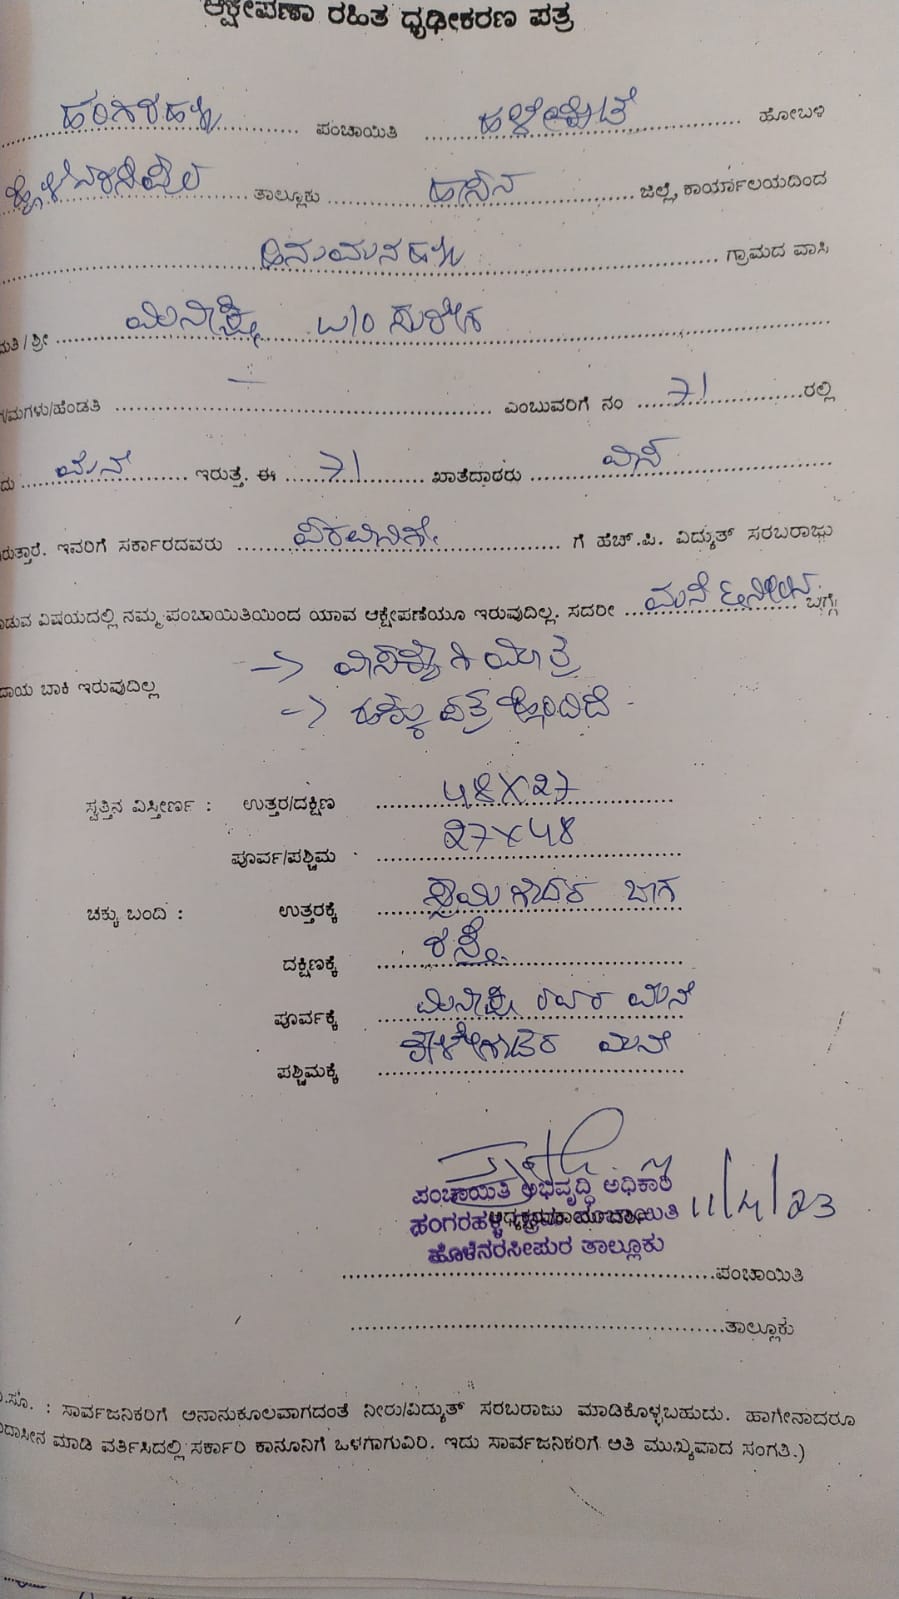 ಆಕ್ಷೇಪಣಾ ರಹಿತ ಧೃಢೀಕರಣ ಪತ್ರ
ಹಂಗರಹಳ್ಳಿ ಪಂಚಾಯಿತಿ ಹಳ್ಳೇಕೋಟೆ ಹೋಬಳಿ
ತಾಲ್ಲೂಕು ಹಾಸನ ಜಿಲ್ಲೆ, ಕಾರ್ಯಾಲಯದಿಂದ
ಹಿನುಮನಹಳ್ಳಿ ಗ್ರಾಮದ ವಾಸಿ
ಮತಿ/ಶ್ರೀ ಮಿನಾಕ್ಷಿ W/o ಸುರೇಶ
/ಮಗಳು/ಹೆಂಡತಿ — ಎಂಬುವರಿಗೆ ನಂ 71 ರಲ್ಲಿ
ದು ಮನೆ ಇರುತ್ತೆ. ಈ 71 ಖಾತೆದಾರರು ವಾಸ
ರುತ್ತಾರೆ. ಇವರಿಗೆ ಸರ್ಕಾರದವರು ಗೆ ಹೆಚ್.ಪಿ. ವಿದ್ಯುತ್ ಸರಬರಾಜು
ಾಡುವ ವಿಷಯದಲ್ಲಿ ನಮ್ಮ ಪಂಚಾಯಿತಿಯಿಂದ ಯಾವ ಆಕ್ಷೇಪಣೆಯೂ ಇರುವುದಿಲ್ಲ. ಸದರೀ ಮನೆ ಬಗ್ಗೆ
-> ವಾಸಕ್ಕಾಗಿ ಮಾತ್ರ
ದಾಯ ಬಾಕಿ ಇರುವುದಿಲ್ಲ
-> ಹಕ್ಕು ಪತ್ರ ಹೊಂದಿದೆ
ಸ್ವತ್ತಿನ ವಿಸ್ತೀರ್ಣ : ಉತ್ತರ/ದಕ್ಷಿಣ 48X27
ಪೂರ್ವ/ಪಶ್ಚಿಮ 27X48
ಚಕ್ಕು ಬಂದಿ : ಉತ್ತರಕ್ಕೆ ಜಾಗ
ದಕ್ಷಿಣಕ್ಕೆ ರಸ್ತೆ
ಪೂರ್ವಕ್ಕೆ ಮಿನಾಕ್ಷಿ ರವರ ಮನೆ
ಪಶ್ಚಿಮಕ್ಕೆ ಮನೆ
ಪಂಚಾಯಿತಿ ಅಭಿವೃದ್ಧಿ ಅಧಿಕಾರಿ
ಹಂಗರಹಳ್ಳಿ ಗ್ರಾಮ ಪಂಚಾಯಿತಿ 11/4/23
ಹೊಳೆನರಸೀಪುರ ತಾಲ್ಲೂಕು
ಪಂಚಾಯಿತಿ
ತಾಲ್ಲೂಕು
.ಸೂ. : ಸಾರ್ವಜನಿಕರಿಗೆ ಅನಾನುಕೂಲವಾಗದಂತೆ ನೀರು/ವಿದ್ಯುತ್ ಸರಬರಾಜು ಮಾಡಿಕೊಳ್ಳಬಹುದು. ಹಾಗೇನಾದರೂ
ದಾಸೀನ ಮಾಡಿ ವರ್ತಿಸಿದಲ್ಲಿ ಸರ್ಕಾರಿ ಕಾನೂನಿಗೆ ಒಳಗಾಗುವಿರಿ. ಇದು ಸಾರ್ವಜನಿಕರಿಗೆ ಅತಿ ಮುಖ್ಯವಾದ ಸಂಗತಿ.)